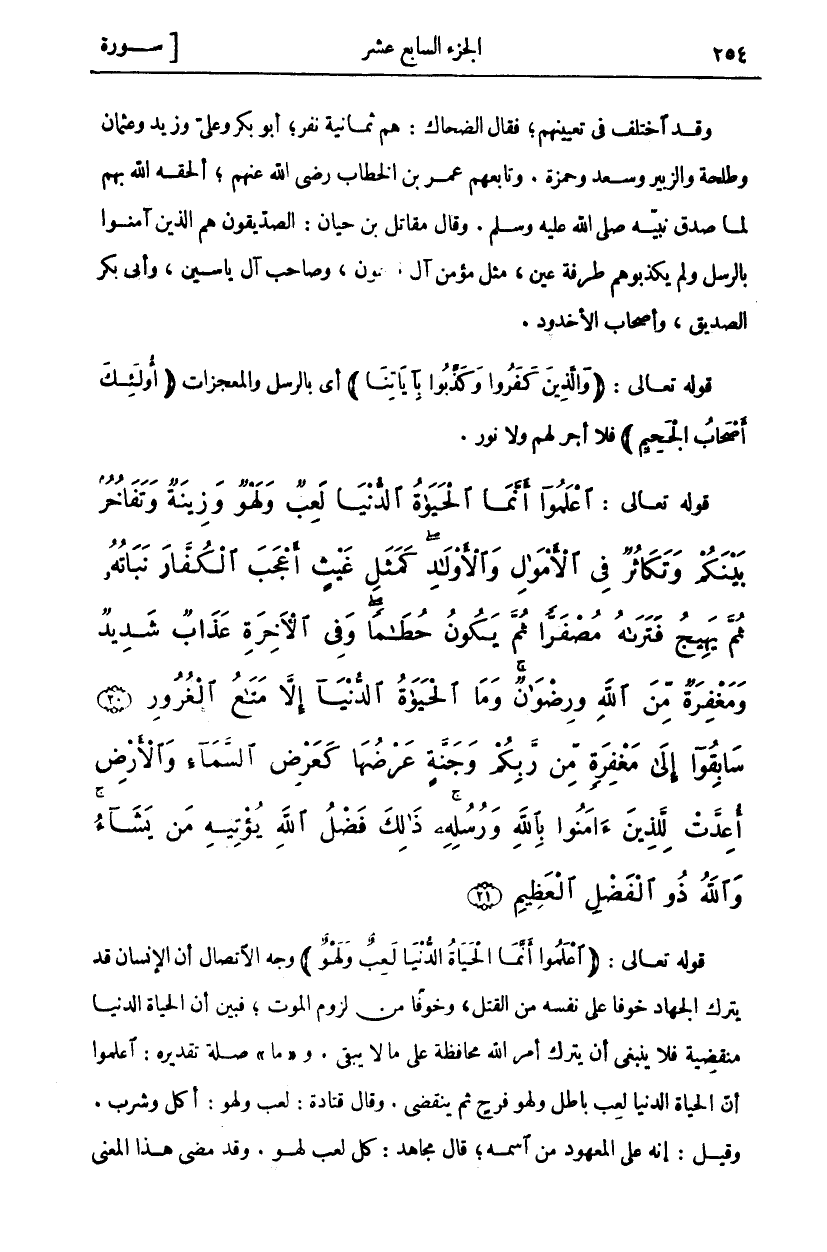 ٢٥٤ الجزء السابع عشر [ ســورة
وقـد ٱختلف فى تعيينهم؛ فقال الضحاك : هم ثمـانية نفر؛ أبو بكر وعلىّ وزيد وعثمان
وطلحة والزبير وسـعد وحمزة . وتابعهم عمـر بن الخطاب رضى الله عنهم ؛ ألحقـه الله بهم
لمـا صدق نبيّـه صلى الله عليه وسـلم . وقال مقاتل بن حيان : الصدّيقون هم الذين آمنـوا
بالرسل ولم يكذبوهم طرفة عين ، مثل مؤمن آل ون ، وصاحب آل ياسـين ، وأبى بكر
الصديق ، وأصحاب الأخدود .
قوله تعـالى : ﴿ وَالَّذِينَ كَفَرُوا وَكَذَّبُوا بِآيَاتِنَـا ﴾ أى بالرسل والمعجزات ﴿ أُولَئِـكَ
أَصْحَابُ الْجَحِيمِ ﴾ فلا أجر لهم ولا نور .
قوله تعـالى : ٱعْلَمُوٓا أَنَّمَـا ٱلْحَيَوٰةُ ٱلدُّنْيَـا لَعِبٌ وَلَهْوٌ وَزِينَةٌ وَتَفَاخُرٌۢ
بَيْنَكُمْ وَتَكَاثُرٌ فِى ٱلْأَمْوَٰلِ وَٱلْأَوْلَـٰدِ ۖ كَمَثَلِ غَيْثٍ أَعْجَبَ ٱلْكُفَّارَ نَبَاتُهُۥ
ثُمَّ يَهِيجُ فَتَرَىٰهُ مُصْفَرًّا ثُمَّ يَـكُونُ حُطَـٰمًا ۖ وَفِى ٱلْـَٔاخِرَةِ عَذَابٌ شَـدِيدٌ
وَمَغْفِرَةٌ مِّنَ ٱللَّهِ وَرِضْوَٰنٌ ۚ وَمَا ٱلْحَيَوٰةُ ٱلدُّنْيَـآ إِلَّا مَتَـٰعُ ٱلْغُرُورِ ۝٢٠
سَابِقُوٓا إِلَىٰ مَغْفِرَةٍ مِّن رَّبِّكُمْ وَجَنَّةٍ عَرْضُهَا كَعَرْضِ ٱلسَّمَآءِ وَٱلْأَرْضِ
أُعِدَّتْ لِلَّذِينَ ءَامَنُوا بِٱللَّهِ وَرُسُلِهِۦ ۚ ذَٰلِكَ فَضْلُ ٱللَّهِ يُؤْتِيـهِ مَن يَشَـآءُ ۚ
وَٱللَّهُ ذُو ٱلْفَضْلِ ٱلْعَظِيمِ ۝٢١
قوله تعـالى : ﴿ ٱعْلَمُوا أَنَّمَـا الْحَيَاةُ الدُّنْيَـا لَعِبٌ وَلَهْوٌ ﴾ وجه الٱتصال أن الإنسان قد
يترك الجهاد خوفا على نفسه من القتل، وخوفًا من لزوم الموت ؛ فبين أن الحياة الدنيـا
منقضية فلا ينبغى أن يترك أمر الله محافظة على ما لا يبقى . و «ما» صـلة تقديره : ٱعلموا
أنّ الحياة الدنيا لعب باطل ولهو فرح ثم ينقضى . وقال قتادة : لعب ولهو : أكل وشرب .
وقيـل : إنه على المعهود من ٱسمـه ؛ قال مجاهد : كل لعب لهـو . وقد مضى هـذا المعنى